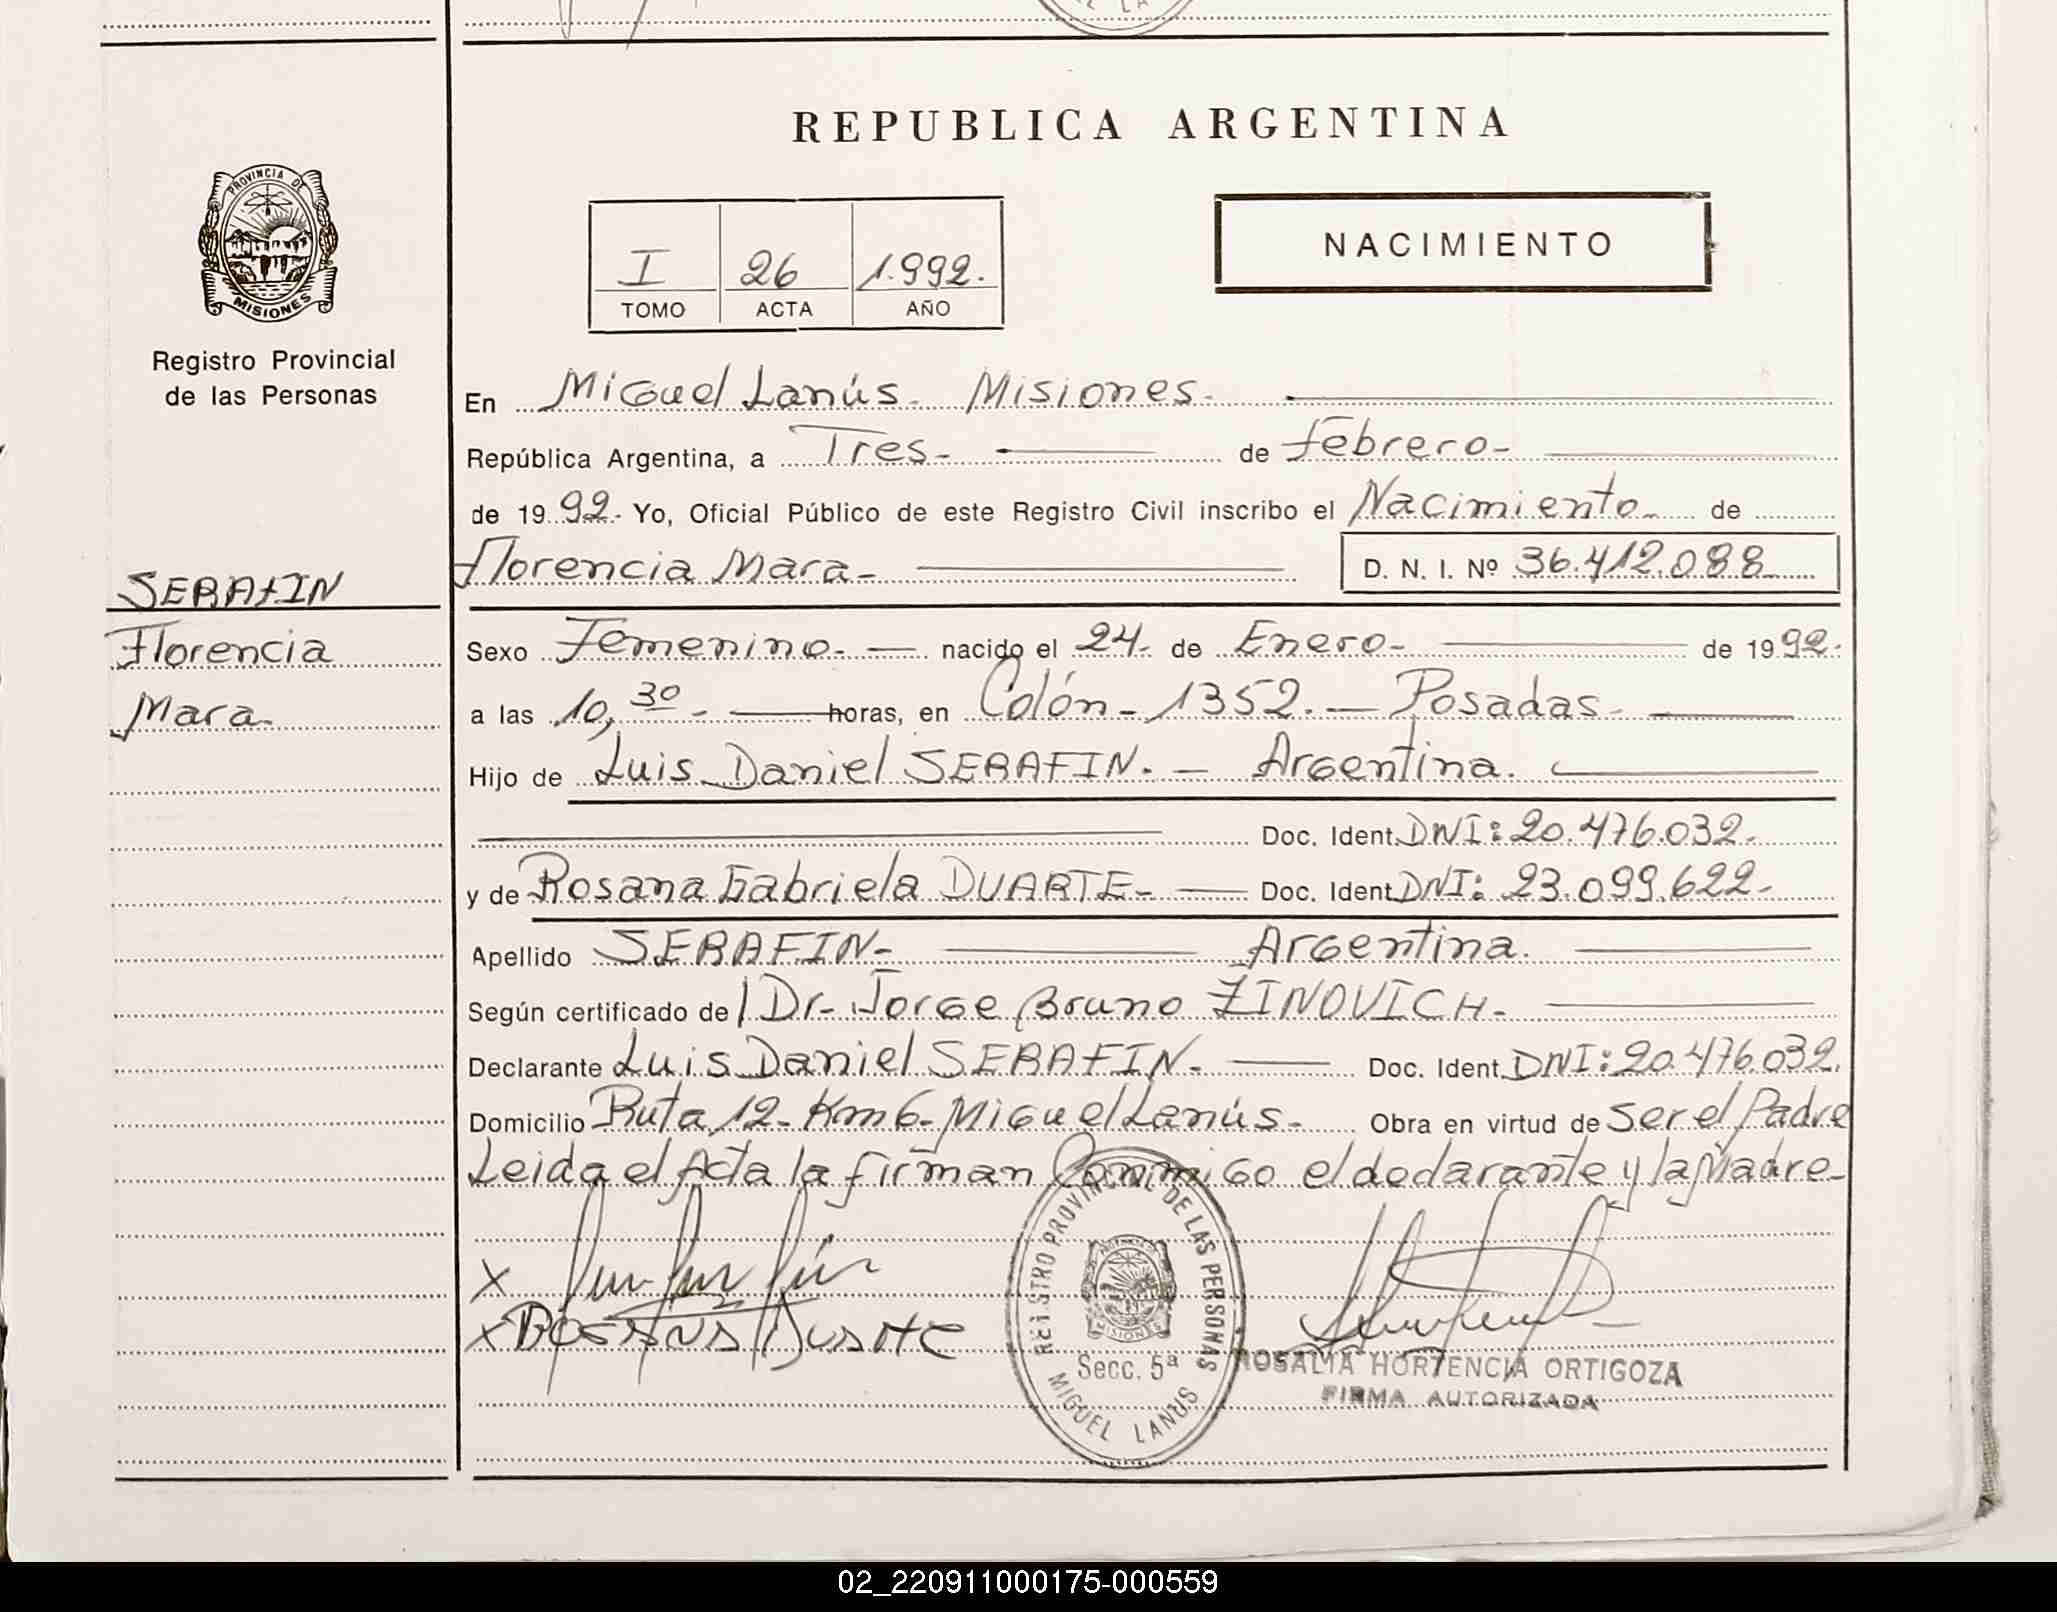 REPUBLICA ARGENTINA
PROVINCIA DE MISIONES
Registro Provincial
de las Personas
I 26 1.992.
TOMO ACTA AÑO
NACIMIENTO
En Miguel Lanús. Misiones.
República Argentina, a Tres- de febrero-
de 1992.- Yo, Oficial Público de este Registro Civil inscribo el Nacimiento de
Florencia Mara- D. N. I. Nº 36.412.088
SERAFIN
Florencia
Mara.
Sexo Femenino. nacido el 24. de Enero- de 1992.
a las 10,30 - horas, en Colón - 1352. - Posadas.
Hijo de Luis Daniel SERAFIN. - Argentina.
Doc. Ident. DNI: 20.476.032.
y de Rosana Gabriela DUARTE- Doc. Ident. DNI: 23.099.622-
Apellido SERAFIN- Argentina.
Según certificado de Dr. Jorge Bruno ZINOVICH.
Declarante Luis Daniel SERAFIN. Doc. Ident. DNI: 20.476.032.
Domicilio Ruta 12- Km 6- Miguel Lanús. Obra en virtud de Ser el Padre
Leida el Acta la firman Conmigo el declarante y la Madre-
X
X Rosana Duarte
REGISTRO PROVINCIAL DE LAS PERSONAS
PROVINCIA DE MISIONES
Secc. 5ª
MIGUEL LANUS
ROSALIA HORTENCIA ORTIGOZA
FIRMA AUTORIZADA
02_220911000175-000559